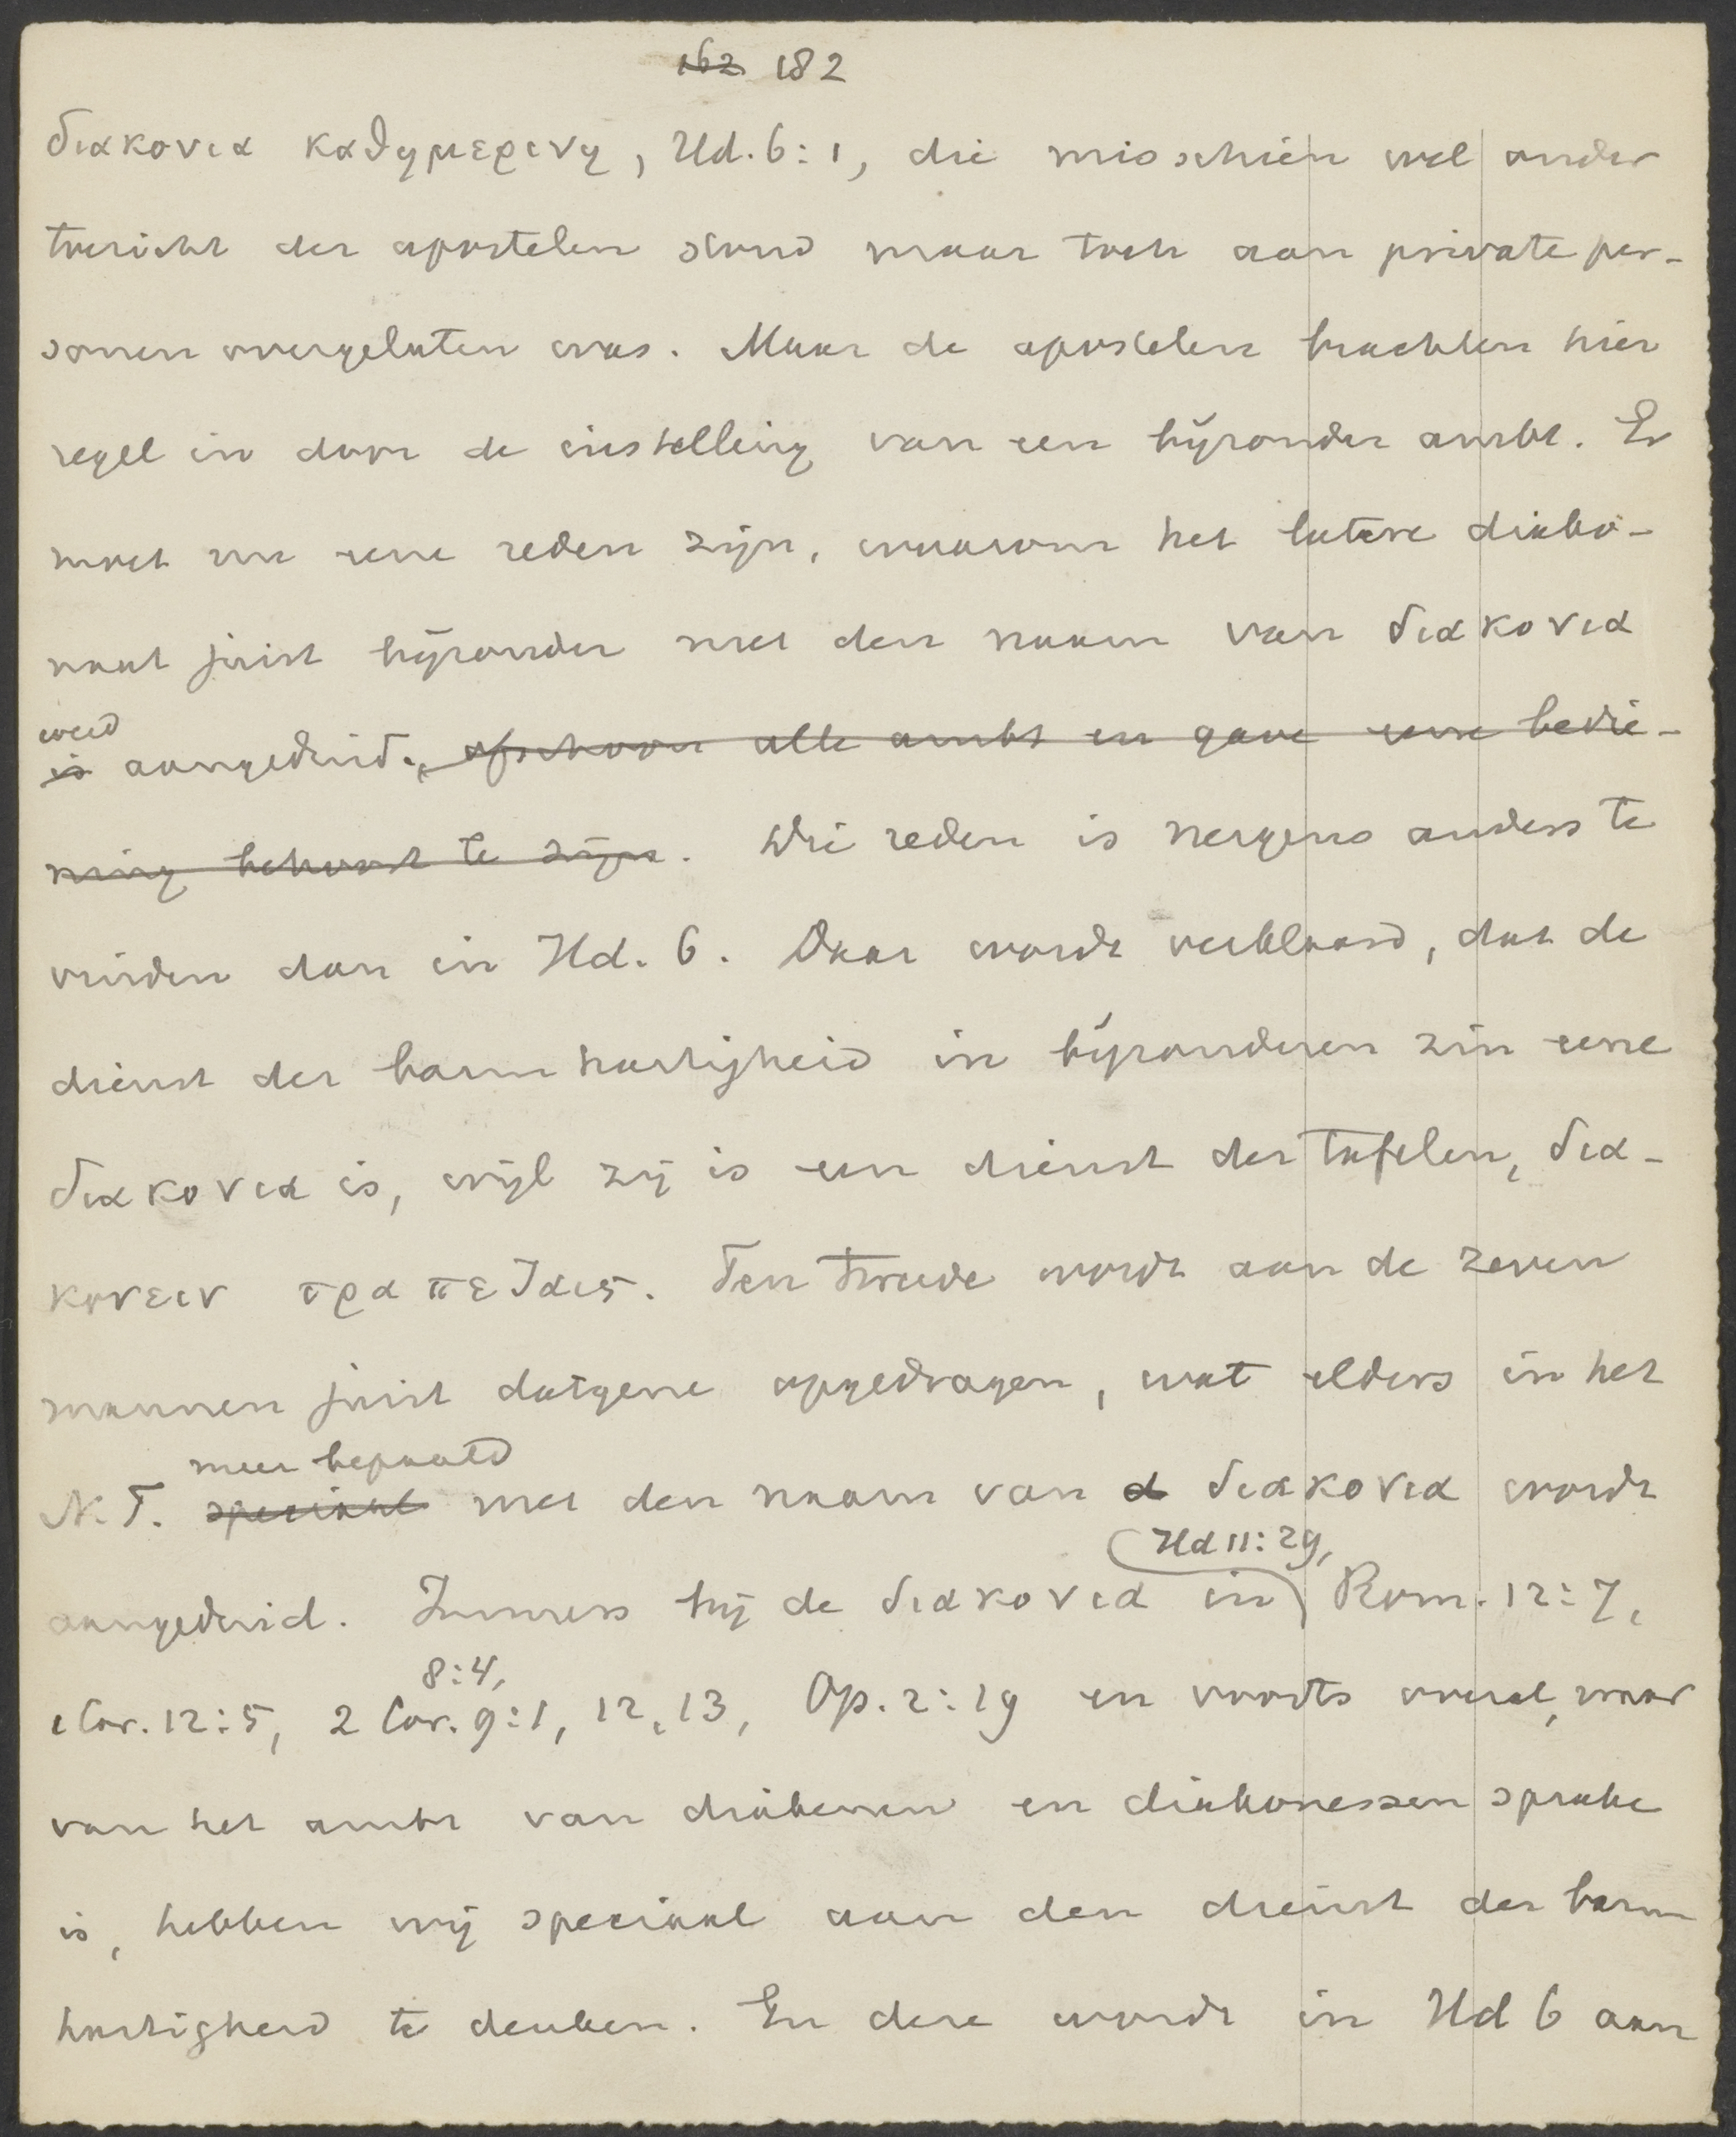 ~~162~~ 182
διακονια καθημερινη, Hd. 6:1, die misschien wel onder
toezicht der apostelen stond maar toch aan private per-
sonen overgelaten was. Maar de apostelen brachten hier
regel in door de instelling van een bijzonder ambt. Er
moet nu eene reden zijn, waarom het latere diako-
naat juist bijzonder met den naam van διακονια
werd
~~is~~ aangeduid. ~~, ofschoon alle ambt en gave eene bedie-~~
~~ning behoort te zijn~~. Die reden is nergens anders te
vinden dan in Hd. 6. Daar wordt verklaard, dat de
dienst der barmhartigheid in bijzonderen zin eene
διακονια is, wijl zij is een dienst der tafelen, δια-
κονειν τραπεζαις. Ten tweede wordt aan de zeven
mannen juist datgene opgedragen, wat elders in het
meer bepaald
N. T. ~~speciaal~~ met den naam van ~~d~~ διακονια wordt
Hd 11:29,
aangeduid. Immers bij de διακονια in Rom. 12:7,
8:4,
1 Cor. 12:5, 2 Cor. 9:1, 12, 13, Op. 2:19 en voorts overal, waar
van het ambt van diakenen en diakonessen sprake
is, hebben wij speciaal aan den dienst der barm
hartigheid te denken. En deze wordt in Hd 6 aan